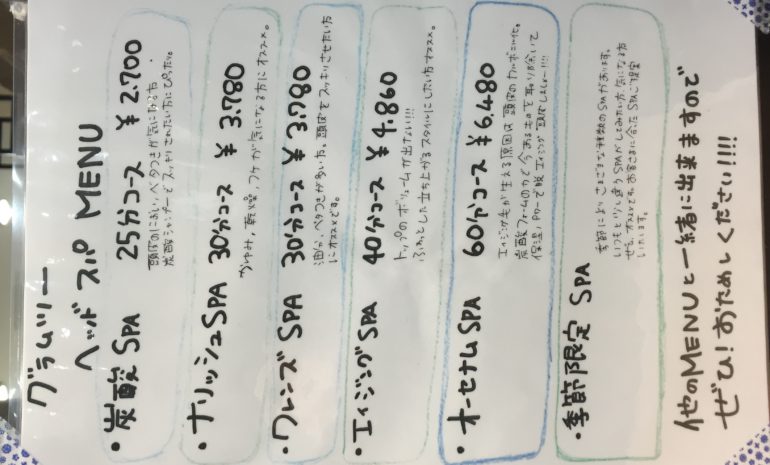 グラムツー
ヘッドスパ MENU
・炭酸SPA 25分コース ¥2.700
頭皮のにおい、ベタつきが気になる方
炭酸シャンプーでスッキリされたい方にぴったり。
・ナリッシュSPA 30分コース ¥3.780
かゆみ、乾燥、フケが気になる方にオススメ。
・クレンズSPA 30分コース ¥3.780
油分、ベタつきが多い方。頭皮をスッキリさせたい方
にオススメです。
・エイジングSPA 40分コース ¥4.860
トップのボリュームが出ない!!!
ふわっとした立ち上がるスタイルにしたい方オススメ。
・オーセナムSPA 60分コース ¥6,480
エイジング毛が生える原因は頭皮のカルボニル化。
炭酸フォームの力で今あるものを取り除いて
保湿パワーで脱エイジング頭皮しましょー!!!!
・季節限定 SPA
季節によりさまざまな種類のSPAがあります。
いつもとひと違うSPAがしてみたい方、気になる方
ぜひオススメです。お客さまに合ったSPAご提案
いたします。
他のMENUと一緒に出来ますので
ぜひ!おためしください!!!!